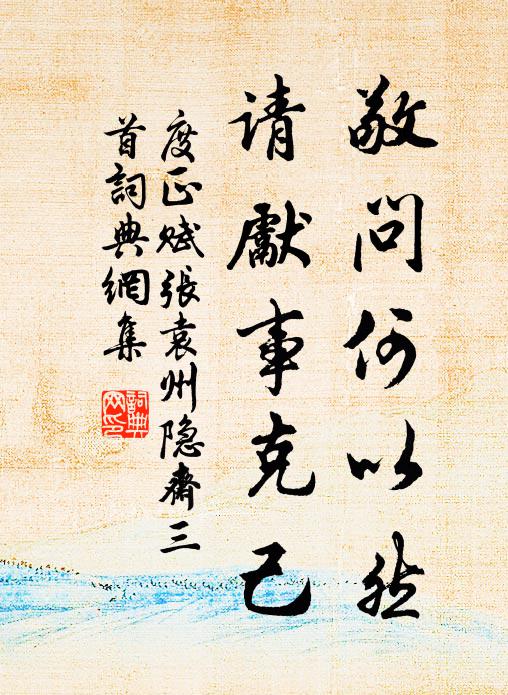 敬问何以然
请献事克己
度正赋张袁州隐斋三
首词典网集
词典网印